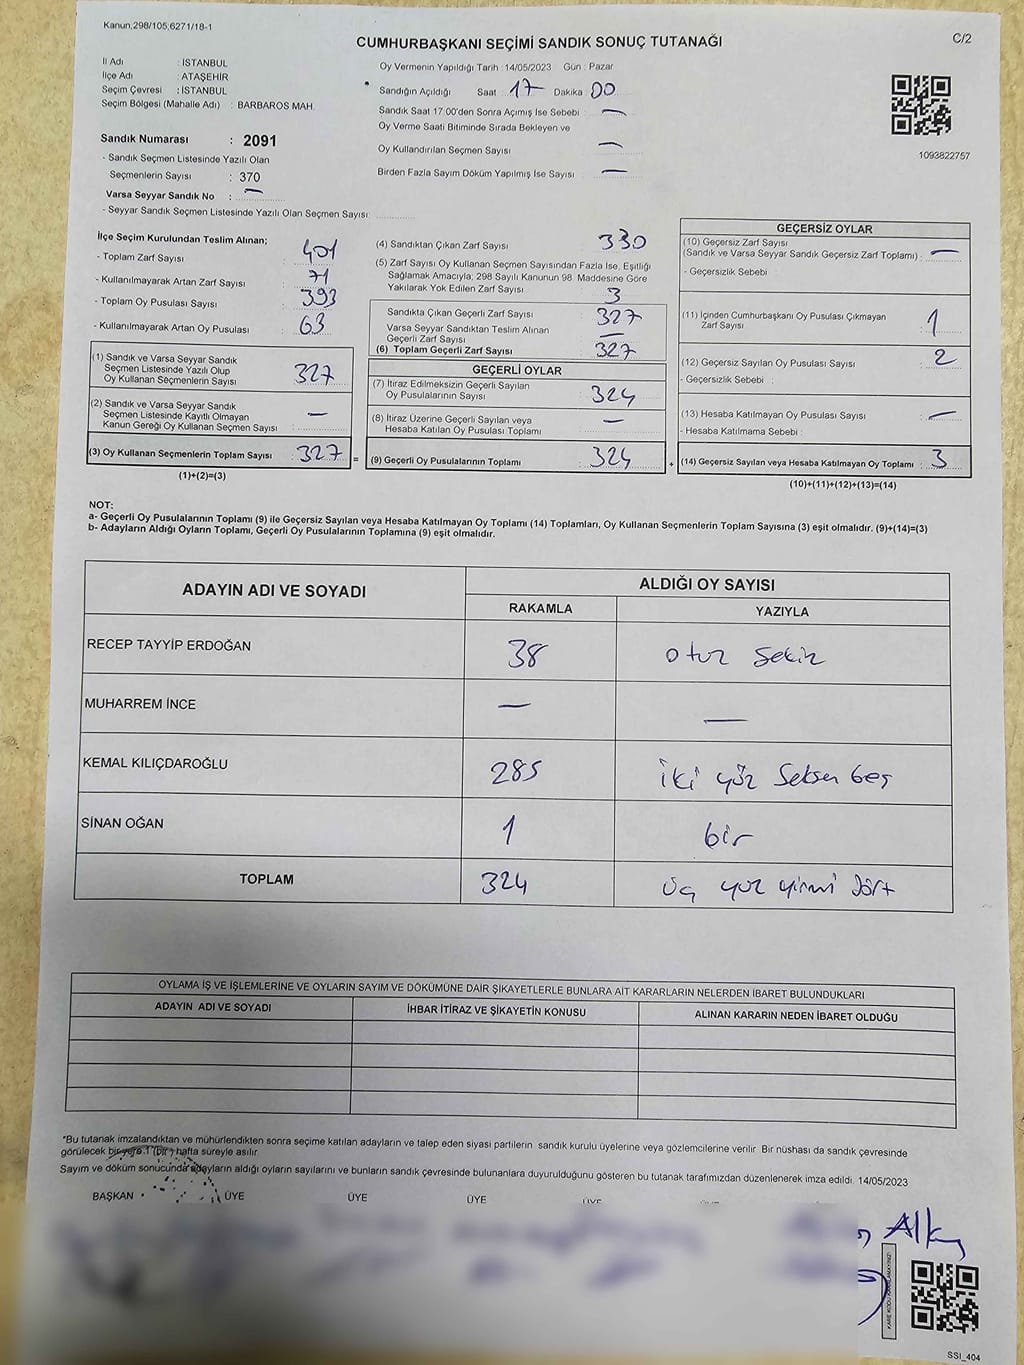 Kanun;298/105;6271/18-1
CUMHURBAŞKANI SEÇİMİ SANDIK SONUÇ TUTANAĞI
C/2
İl Adı : İSTANBUL
İlçe Adı : ATAŞEHİR
Seçim Çevresi : İSTANBUL
Seçim Bölgesi (Mahalle Adı) : BARBAROS MAH.
Sandık Numarası : 2091
- Sandık Seçmen Listesinde Yazılı Olan
Seçmenlerin Sayısı : 370
Varsa Seyyar Sandık No : —
- Seyyar Sandık Seçmen Listesinde Yazılı Olan Seçmen Sayısı:
Oy Vermenin Yapıldığı Tarih : 14/05/2023 Gün : Pazar
Sandığın Açıldığı Saat : 17 Dakika : 00
Sandık Saat 17:00'den Sonra Açımış İse Sebebi : —
Oy Verme Saati Bitiminde Sırada Bekleyen ve
Oy Kullandırılan Seçmen Sayısı : —
Birden Fazla Sayım Döküm Yapılmış İse Sayısı : —
1093822757
İlçe Seçim Kurulundan Teslim Alınan;
- Toplam Zarf Sayısı : 401
- Kullanılmayarak Artan Zarf Sayısı : 71
- Toplam Oy Pusulası Sayısı : 393
- Kullanılmayarak Artan Oy Pusulası : 63
(1) Sandık ve Varsa Seyyar Sandık
Seçmen Listesinde Yazılı Olup
Oy Kullanan Seçmenlerin Sayısı : 327
(2) Sandık ve Varsa Seyyar Sandık
Seçmen Listesinde Kayıtlı Olmayan
Kanun Gereği Oy Kullanan Seçmen Sayısı : —
(3) Oy Kullanan Seçmenlerin Toplam Sayısı : 327 =
(1)+(2)=(3)
(4) Sandıktan Çıkan Zarf Sayısı : 330
(5) Zarf Sayısı Oy Kullanan Seçmen Sayısından Fazla İse, Eşitliği
Sağlamak Amacıyla; 298 Sayılı Kanunun 98. Maddesine Göre
Yakılarak Yok Edilen Zarf Sayısı : 3
Sandıkta Çıkan Geçerli Zarf Sayısı : 327
Varsa Seyyar Sandıktan Teslim Alınan
Geçerli Zarf Sayısı : —
(6) Toplam Geçerli Zarf Sayısı : 327
GEÇERLİ OYLAR
(7) İtiraz Edilmeksizin Geçerli Sayılan
Oy Pusulalarının Sayısı : 324
(8) İtiraz Üzerine Geçerli Sayılan veya
Hesaba Katılan Oy Pusulası Toplamı : —
(9) Geçerli Oy Pusulalarının Toplamı : 324 +
GEÇERSİZ OYLAR
(10) Geçersiz Zarf Sayısı
(Sandık ve Varsa Seyyar Sandık Geçersiz Zarf Toplamı) : —
- Geçersizlik Sebebi :
(11) İçinden Cumhurbaşkanı Oy Pusulası Çıkmayan
Zarf Sayısı : 1
(12) Geçersiz Sayılan Oy Pusulası Sayısı : 2
- Geçersizlik Sebebi :
(13) Hesaba Katılmayan Oy Pusulası Sayısı : —
- Hesaba Katılmama Sebebi :
(14) Geçersiz Sayılan veya Hesaba Katılmayan Oy Toplamı : 3
(10)+(11)+(12)+(13)=(14)
NOT:
a- Geçerli Oy Pusulalarının Toplamı (9) ile Geçersiz Sayılan veya Hesaba Katılmayan Oy Toplamı (14) Toplamları, Oy Kullanan Seçmenlerin Toplam Sayısına (3) eşit olmalıdır. (9)+(14)=(3)
b- Adayların Aldığı Oyların Toplamı, Geçerli Oy Pusulalarının Toplamına (9) eşit olmalıdır.
ADAYIN ADI VE SOYADI ALDIĞI OY SAYISI
RAKAMLA YAZIYLA
RECEP TAYYİP ERDOĞAN 38 otuz sekiz
MUHARREM İNCE — —
KEMAL KILIÇDAROĞLU 285 iki yüz seksen beş
SİNAN OĞAN 1 bir
TOPLAM 324 üç yüz yirmi dört
OYLAMA İŞ VE İŞLEMLERİNE VE OYLARIN SAYIM VE DÖKÜMÜNE DAİR ŞİKAYETLERLE BUNLARA AİT KARARLARIN NELERDEN İBARET BULUNDUKLARI
ADAYIN ADI VE SOYADI İHBAR İTİRAZ VE ŞİKAYETİN KONUSU ALINAN KARARIN NEDEN İBARET OLDUĞU
*Bu tutanak imzalandıktan ve mühürlendikten sonra seçime katılan adayların ve talep eden siyasi partilerin sandık kurulu üyelerine veya gözlemcilerine verilir. Bir nüshası da sandık çevresinde
görülecek bir yere 1 (bir) hafta süreyle asılır.
Sayım ve döküm sonucunda adayların aldığı oyların sayılarını ve bunların sandık çevresinde bulunanlara duyurulduğunu gösteren bu tutanak tarafımızdan düzenlenerek imza edildi. 14/05/2023
BAŞKAN ÜYE ÜYE ÜYE ÜYE
SSİ_404